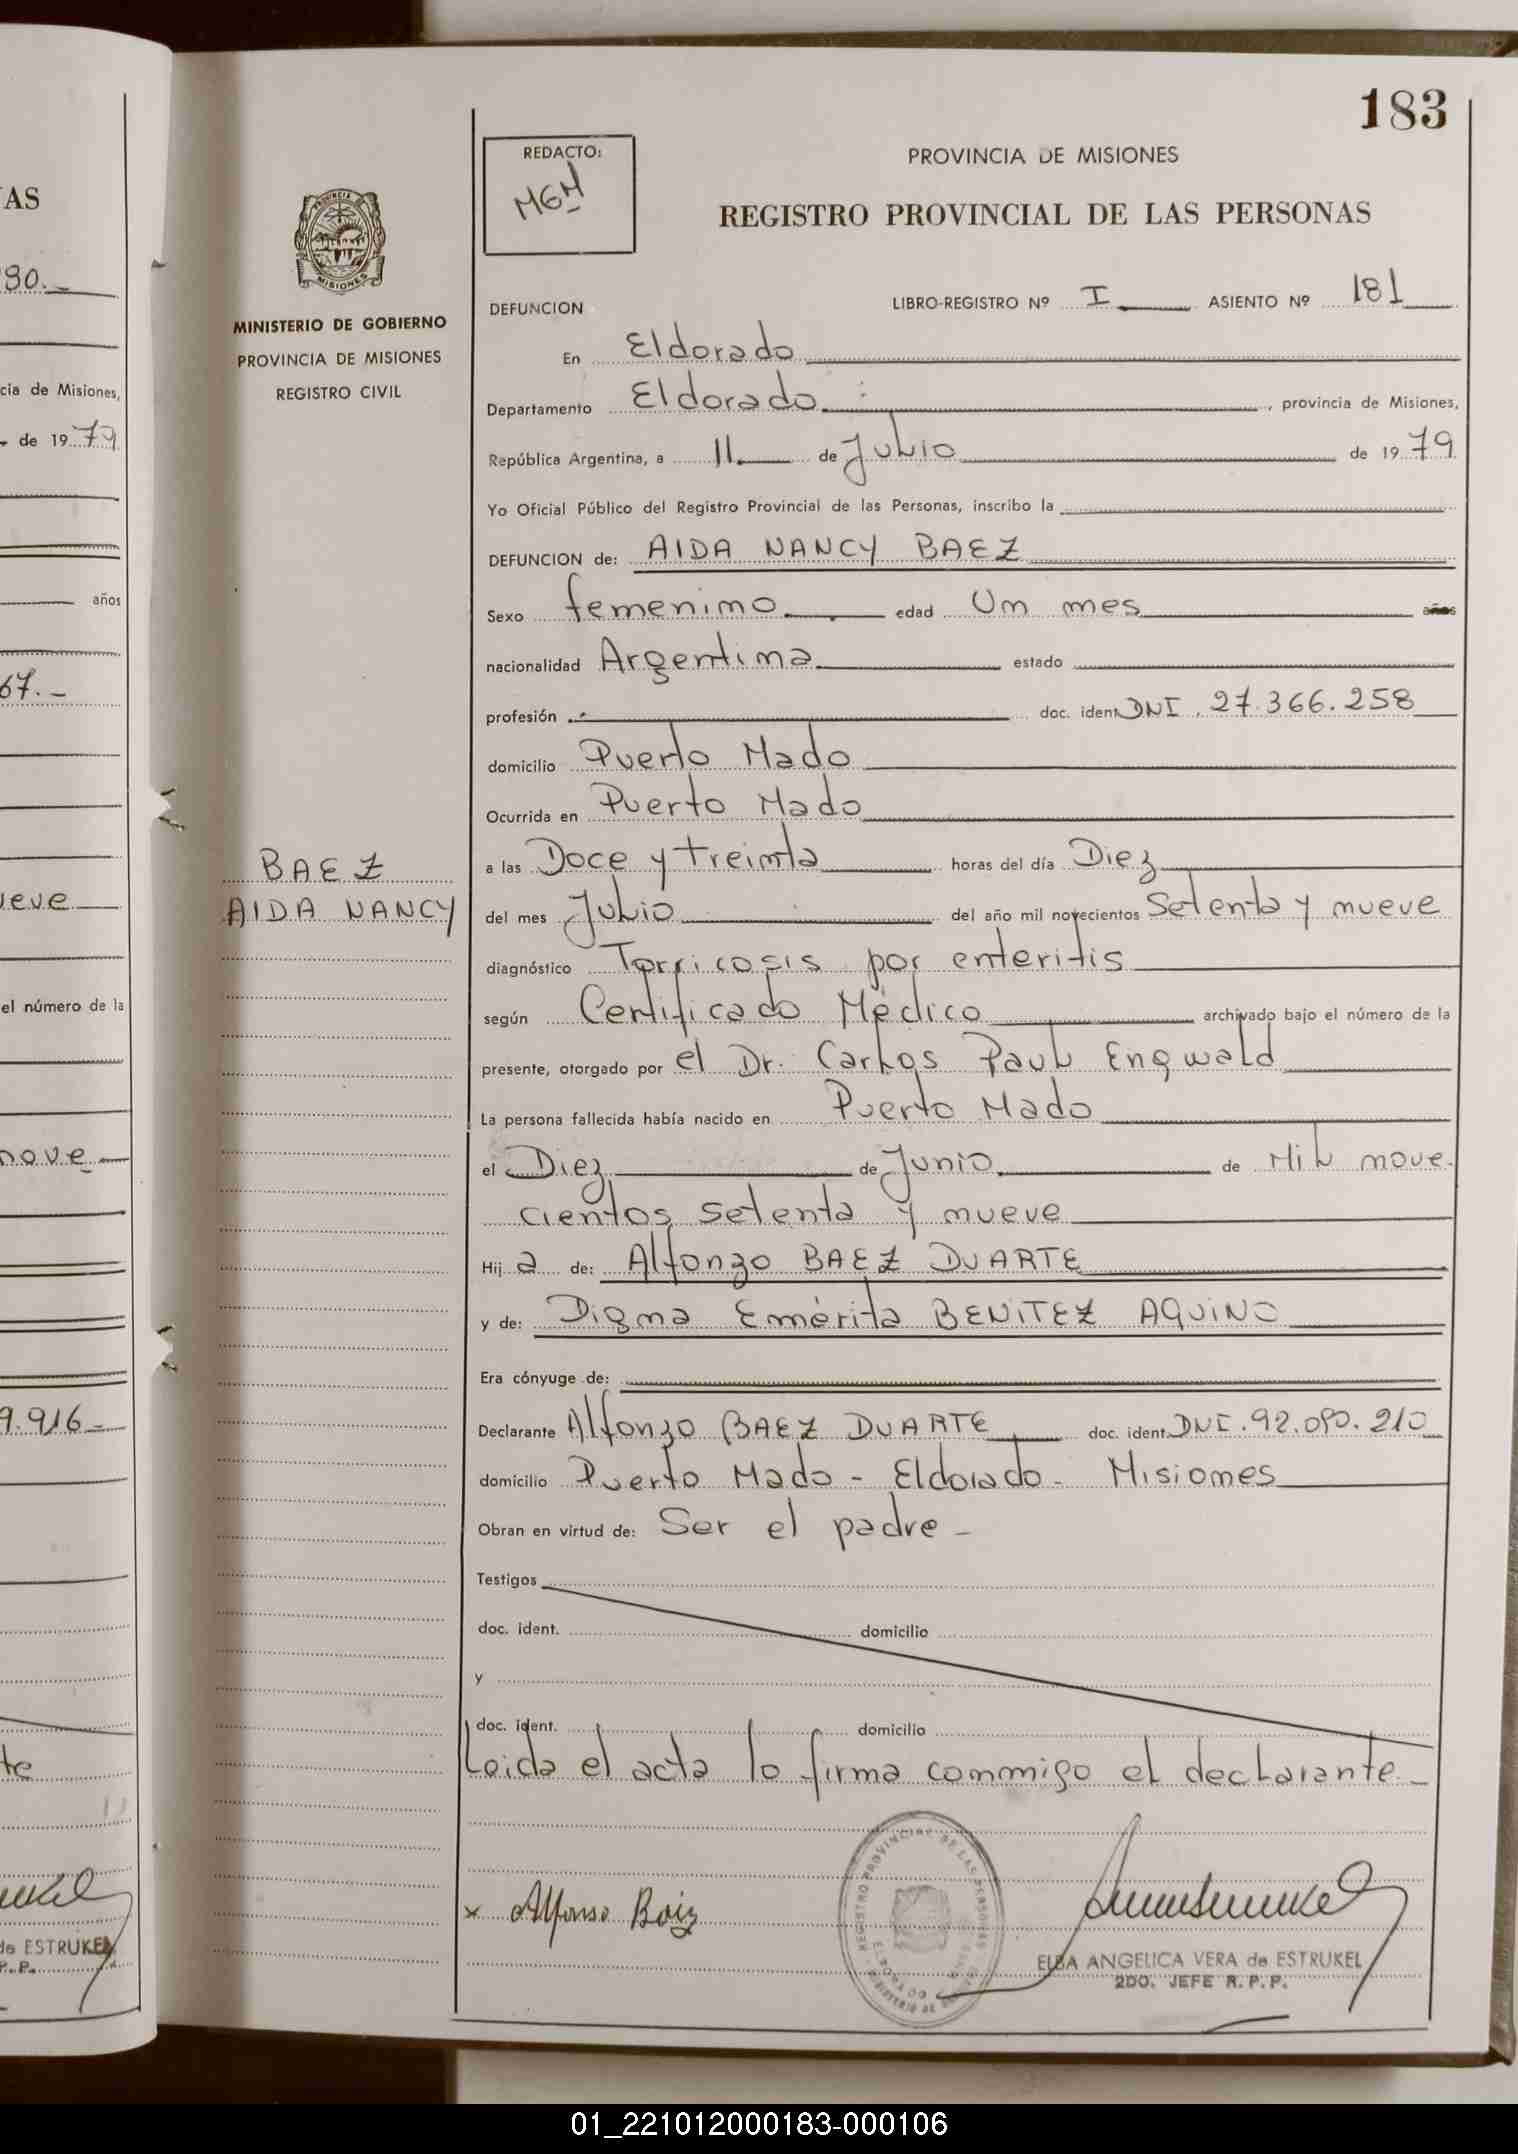 183
REDACTO:
MGM
PROVINCIA DE MISIONES
REGISTRO PROVINCIAL DE LAS PERSONAS
MINISTERIO DE GOBIERNO
PROVINCIA DE MISIONES
REGISTRO CIVIL
DEFUNCION
LIBRO-REGISTRO Nº I ASIENTO Nº 181
En Eldorado
Departamento Eldorado, provincia de Misiones,
República Argentina, a 11 de Julio de 1979
Yo Oficial Público del Registro Provincial de las Personas, inscribo la
DEFUNCION de: AIDA NANCY BAEZ
Sexo femenino edad Un mes años
nacionalidad Argentina estado
profesión doc. ident. DNI. 27.366.258
domicilio Puerto Mado
Ocurrida en Puerto Mado
BAEZ
AIDA NANCY
a las Doce y treinta horas del día Diez
del mes Julio del año mil novecientos Setenta y nueve
diagnóstico por enteritis
según Certificado Médico archivado bajo el número de la
presente, otorgado por el Dr. Carlos Paul Engwald
La persona fallecida había nacido en Puerto Mado
el Diez de Junio de Mil nove-
cientos setenta y nueve
Hij a de: Alfonzo BAEZ DUARTE
y de: Digna Emérita BENITEZ AQUINO
Era cónyuge de:
Declarante Alfonzo BAEZ DUARTE doc. ident. DNI. 92.090.210
domicilio Puerto Mado - Eldorado - Misiones
Obran en virtud de: Ser el padre -
Testigos
doc. ident. domicilio
y
doc. ident. domicilio
Leida el acta lo firma conmigo el declarante.-
x Alfonso Baiz
ELBA ANGELICA VERA de ESTRUKEL
2DO. JEFE R.P.P.
AS
90.-
cia de Misiones,
de 1979
años
67.-
ueve
el número de la
nove
9.916-
te
de ESTRUKEL
P.P.
01_221012000183-000106